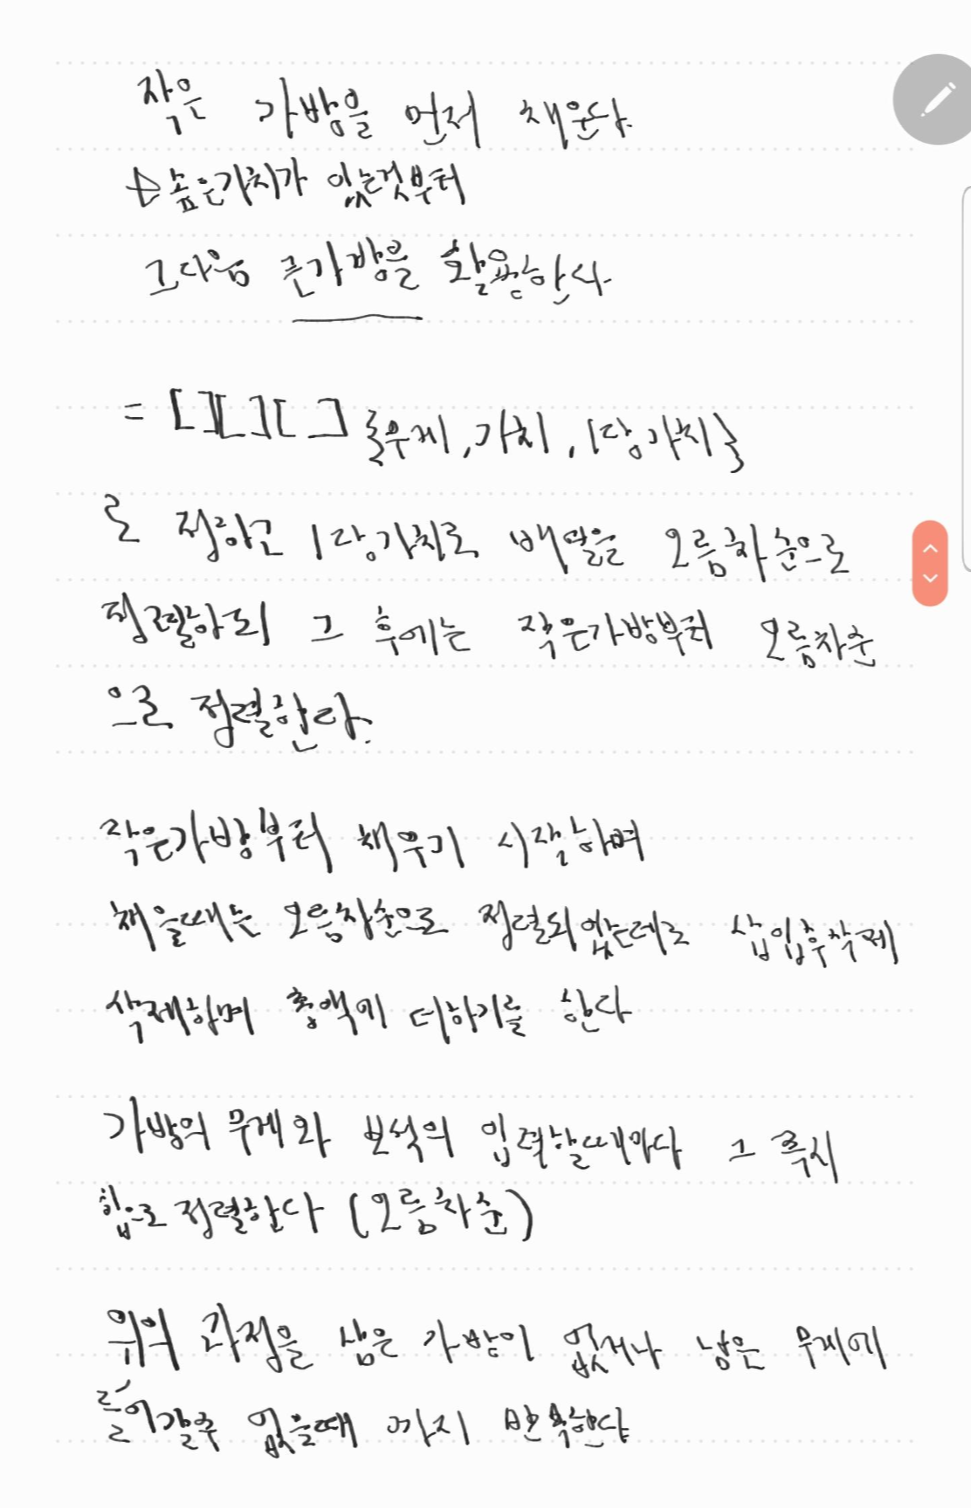 작은 가방을 먼저 채운다.
높은가치가 있는것부터
그다음 큰가방을 활용한다.
= [ ][ ][ ] {무게, 가치, 1당가치}
로 정하고 1당가치로 배열을 오름차순으로
정렬하되 그 후에는 작은가방부터 오름차순
으로 정렬한다.
작은가방부터 채우기 시작하며
채울때는 오름차순으로 정렬되있는데로 삽입후삭제
삭제하며 총액에 더하기를 한다
가방의 무게와 보석의 입력할때마다 그 즉시
힙으로 정렬한다 (오름차순)
위의 과정을 남은 가방이 없거나 남은 무게에
들어갈수 없을때 까지 반복한다